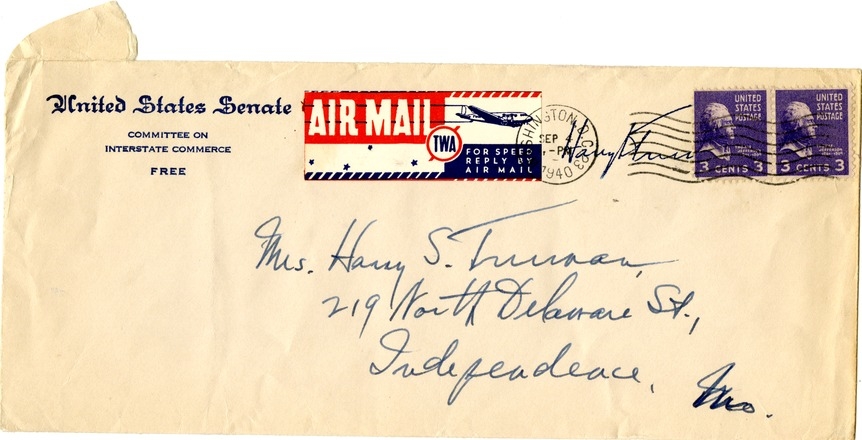 United States Senate
COMMITTEE ON
INTERSTATE COMMERCE
FREE
AIR MAIL
TWA
FOR SPEED
REPLY BY
AIR MAIL
WASHINGTON, D.C.
SEP 4
-PM
1940
Harry S Truman
UNITED
STATES
POSTAGE
3 CENTS 3
UNITED
STATES
POSTAGE
3 CENTS 3
Mrs. Harry S. Truman,
219 North Delaware St.,
Independence,
Mo.